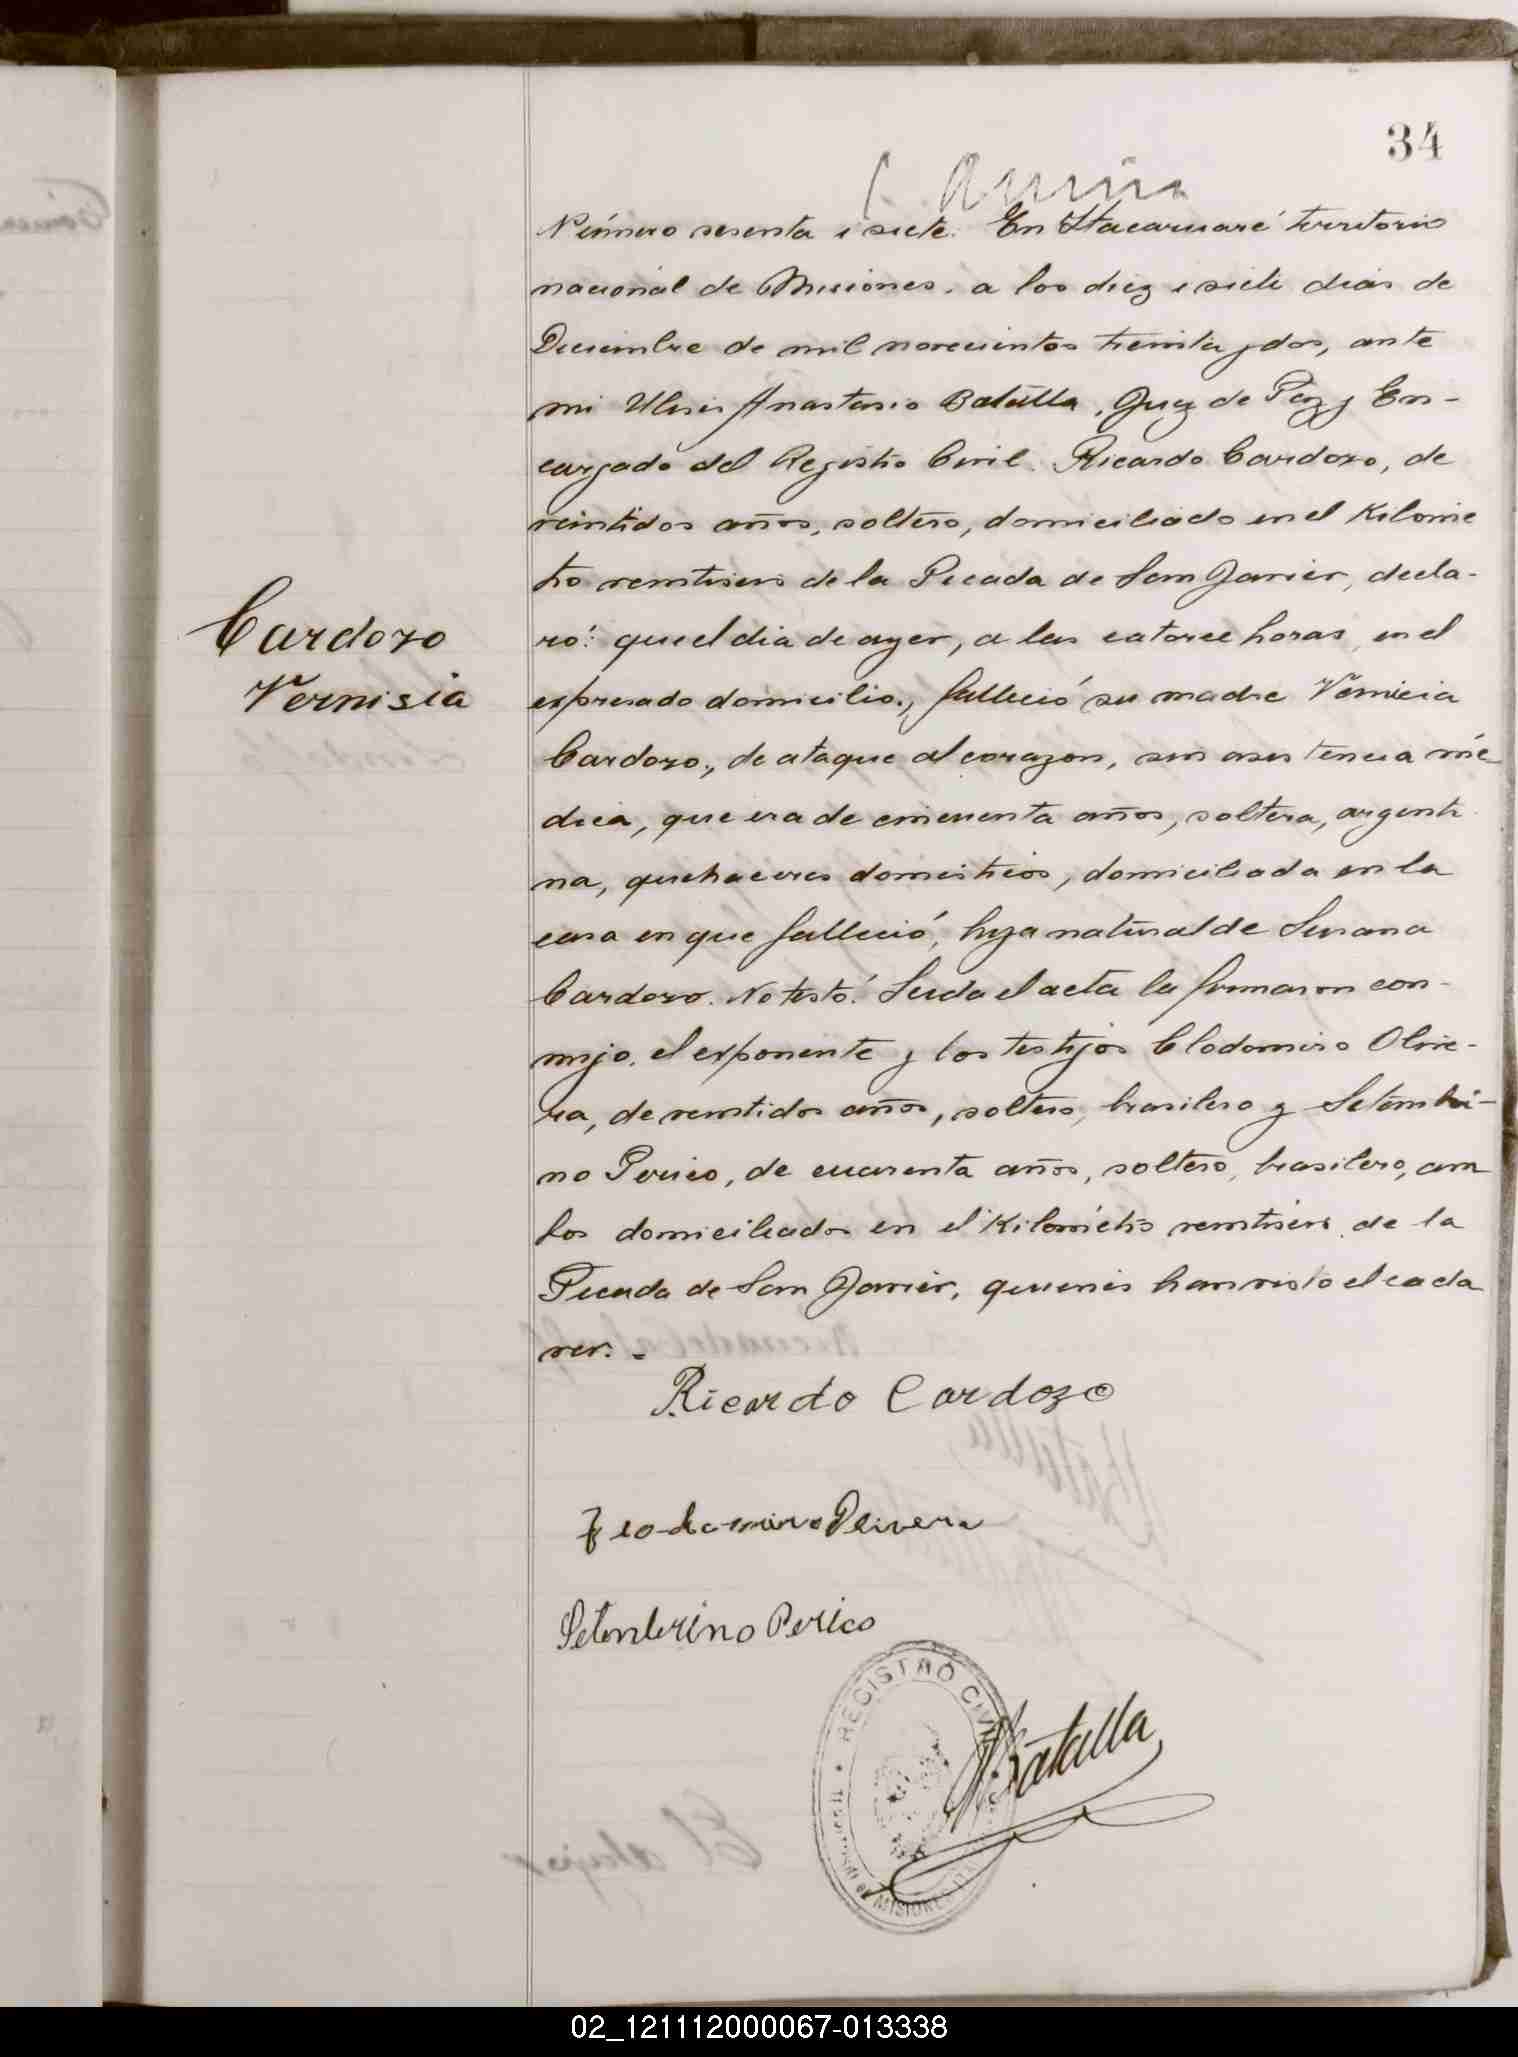 34
Número sesenta i siete. En Itacaruaré territorio
nacional de Misiones, a los diez i siete dias de
Diciembre de mil novecientos treinta y dos, ante
mi Ulises Anastasio Batalla, Juez de Paz y En-
cargado del Registro Civil. Ricardo Cardozo, de
veintidos años, soltero, domiciliado en el Kilome
tro veintiseis de la Picada de San Javier, decla-
ró: que el dia de ayer, a las catorce horas, en el
Cardozo
expresado domicilio, falleció su madre Vernicia
Vernisia
Cardozo, de ataque al corazon, sin asistencia mé-
dica, que era de cincuenta años, soltera, argenti
na, quehaceres domésticos, domiciliada en la
casa en que falleció, hija natural de Susana
Cardozo. No testó. Leida el acta la firmaron con-
migo, el exponente y los testigos Clodomiro Olive-
ra, de veintidos años, soltero, brasilero y Setembri-
no Perico, de cuarenta años, soltero, brasilero, am
bos domiciliados en el Kilométro veintiseis de la
Picada de San Javier, quienes han visto el cada
ver. -
Ricardo Cardozo
Olivera
Setembrino Perico
REGISTRO CIVIL
MISIONES
Batalla
02_121112000067-013338